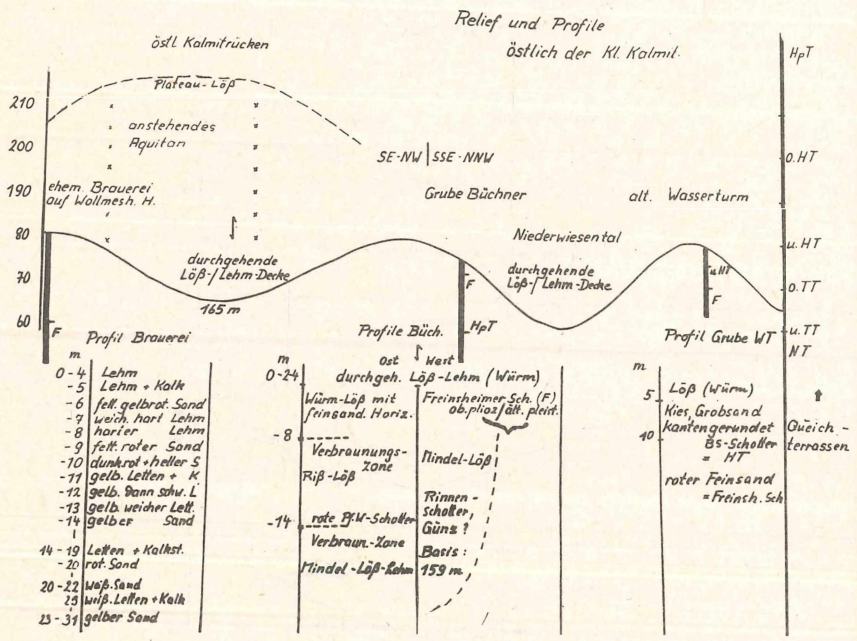 Relief und Profile
östlich der Kl. Kalmit.
östl. Kalmitrücken
Plateau-Löß
anstehendes
Aquitan
210
200
190
80
70
60
ehem. Brauerei
auf Wollmesh. H.
SE-NW | SSE-NNW
Grube Büchner
alt. Wasserturm
Niederwiesental
durchgehende
Löß-/Lehm-Decke
165 m
durchgehende
Löß-/Lehm-Decke
F
F
HpT
u HT
F
HpT
o.HT
u.HT
o.TT
u.TT
NT
Queich-
terrassen
Profil Brauerei
m
0-4 Lehm
-5 Lehm + Kalk
-6 fett. gelbrot. Sand
-7 weich. hart Lehm
-8 harter Lehm
-9 fett. roter Sand
-10 dunkrot + heller S
-11 gelb. Letten + K
-12 gelb. dann schw. L
-13 gelb. weicher Lett.
-14 gelber Sand
14-19 Letten + Kalkst.
-20 rot. Sand
20-22 weiß. Sand
25 weiß. Letten + Kalk
23-31 gelber Sand
Profile Büch.
Ost West
m
0-24 durchgeh. Löß-Lehm (Würm)
Würm-Löß mit
feinsand. Horiz.
-8
Verbraunungs-
zone
Riß-Löß
-14 rote Pf.W-Schotter
Verbraun.-Zone
Mindel-Löß-Lehm
Freinsheimer Sch. (F)
ob. plioz/ält. pleist.
Mindel-Löß
Rinnen-
schotter,
Günz ?
Basis :
159 m
Profil Grube WT
m
5
10
Löß (Würm)
Kies, Grobsand
kantengerundet
BS-Schotter
= HT
roter Feinsand
= Freinsh. Sch